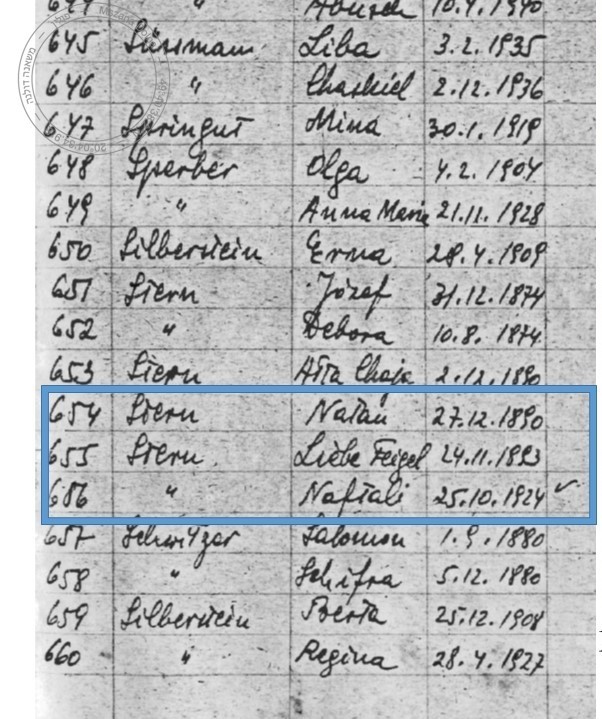 644 " Abusch 10.4.1940
645 Süssmann Liba 3.2.1935
646 " Chaskiel 2.12.1936
647 Springut Mina 30.1.1919
648 Sperber Olga 4.2.1904
649 " Anna Maria 21.11.1928
650 Silberstein Erna 28.4.1909
651 Stern Józef 31.12.1874
652 " Debora 10.8.1874
653 Stern Itta Chaja 2.12.1890
654 Stern Natan 27.12.1890
655 Stern Liebe Feigel 24.11.1893
656 " Naftali 25.10.1924 ✓
657 Schwitzer Salomon 1.9.1880
658 " Schifra 5.12.1880
659 Silberstein Berta 25.12.1908
660 " Regina 28.4.1927